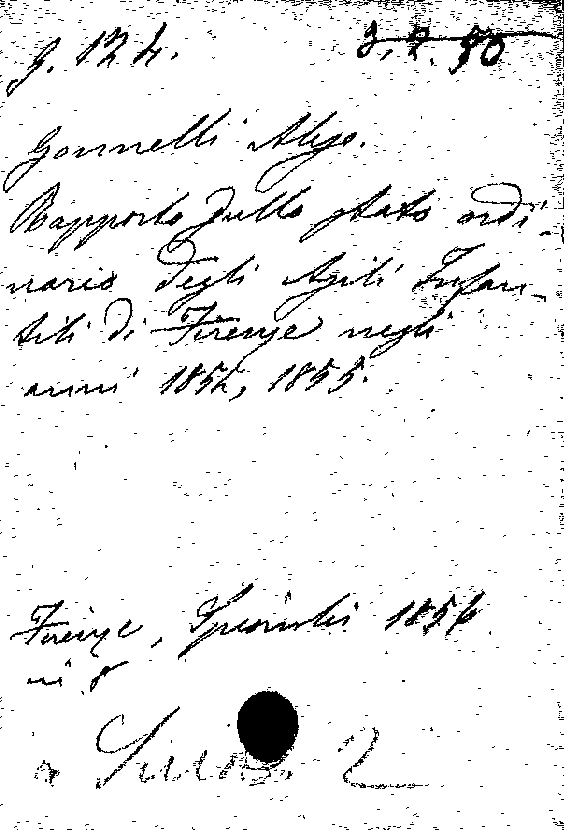 G. 124. 3. 2. 50
Gonnelli Aless.
Rapporto sullo stato ordi-
nario degli Asili Infan-
tili di Firenze negli
anni 1854, 1855.
Firenze, 1856
in 8
2